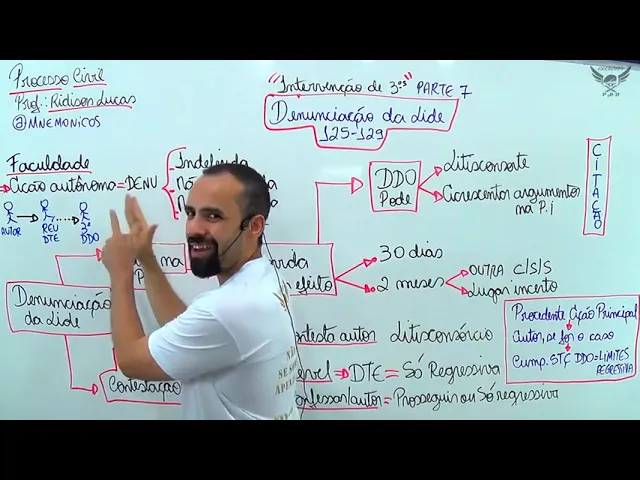 Processo Civil
Prof.: Ridison Lucas
@MNEMONICOS
"Intervenção de 3ºs" PARTE 7
Denunciação da Lide
125-129
Faculdade
Ação autônoma = DENU
Indeferida
AUTOR
REU
DTE
3º
DDO
DDO
Pode
Litisconsorte
Acrescentar argumentos
na P.i
CITAÇÃO
Denunciação
da Lide
Contestação
efeito
30 dias
2 meses
OUTRA C/S/S
Lugar incerto
autor Litisconsórcio
DTE = Só Regressiva
autor = Prosseguir ou Só regressiva
Procedente Ação Principal
Autor, se for o caso
Cump. STÇ DDO = LIMITES
REGRESSIVA